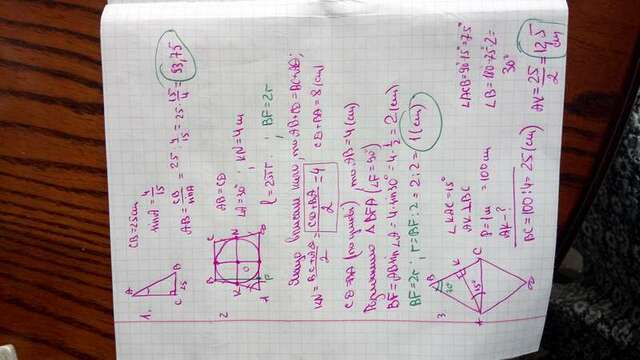 1.
A
C 25 B
CB=25cm
sinA=4/15
AB=CB/sinA=25:4/15=25·15/4=93,75
2
B C
K O N
A F D
AB=CD
∠A=30°; KN=4см
l=2πr; BF=2r
Якщо вписане коло, то AB+CD=BC+AD;
KN=BC+AD/2=CD+BA/2=4 CD+BA=8(см)
CD=BA (по умові) то AB=4(см)
Розглянемо △BFA (∠F=90°)
BF=AB sin∠A=4·sin30°=4·1/2=2(см)
BF=2r; r=BF:2=2:2=1(см)
3
B
30°
K
A 15° C
D
∠KAC=15°
AK⊥BC
P=1м=100см
AK-?
BC=100:4=25(см)
∠ACB=90°-15°=75°
∠B=180-75·2=
30°
AK=25/2=12,5
см